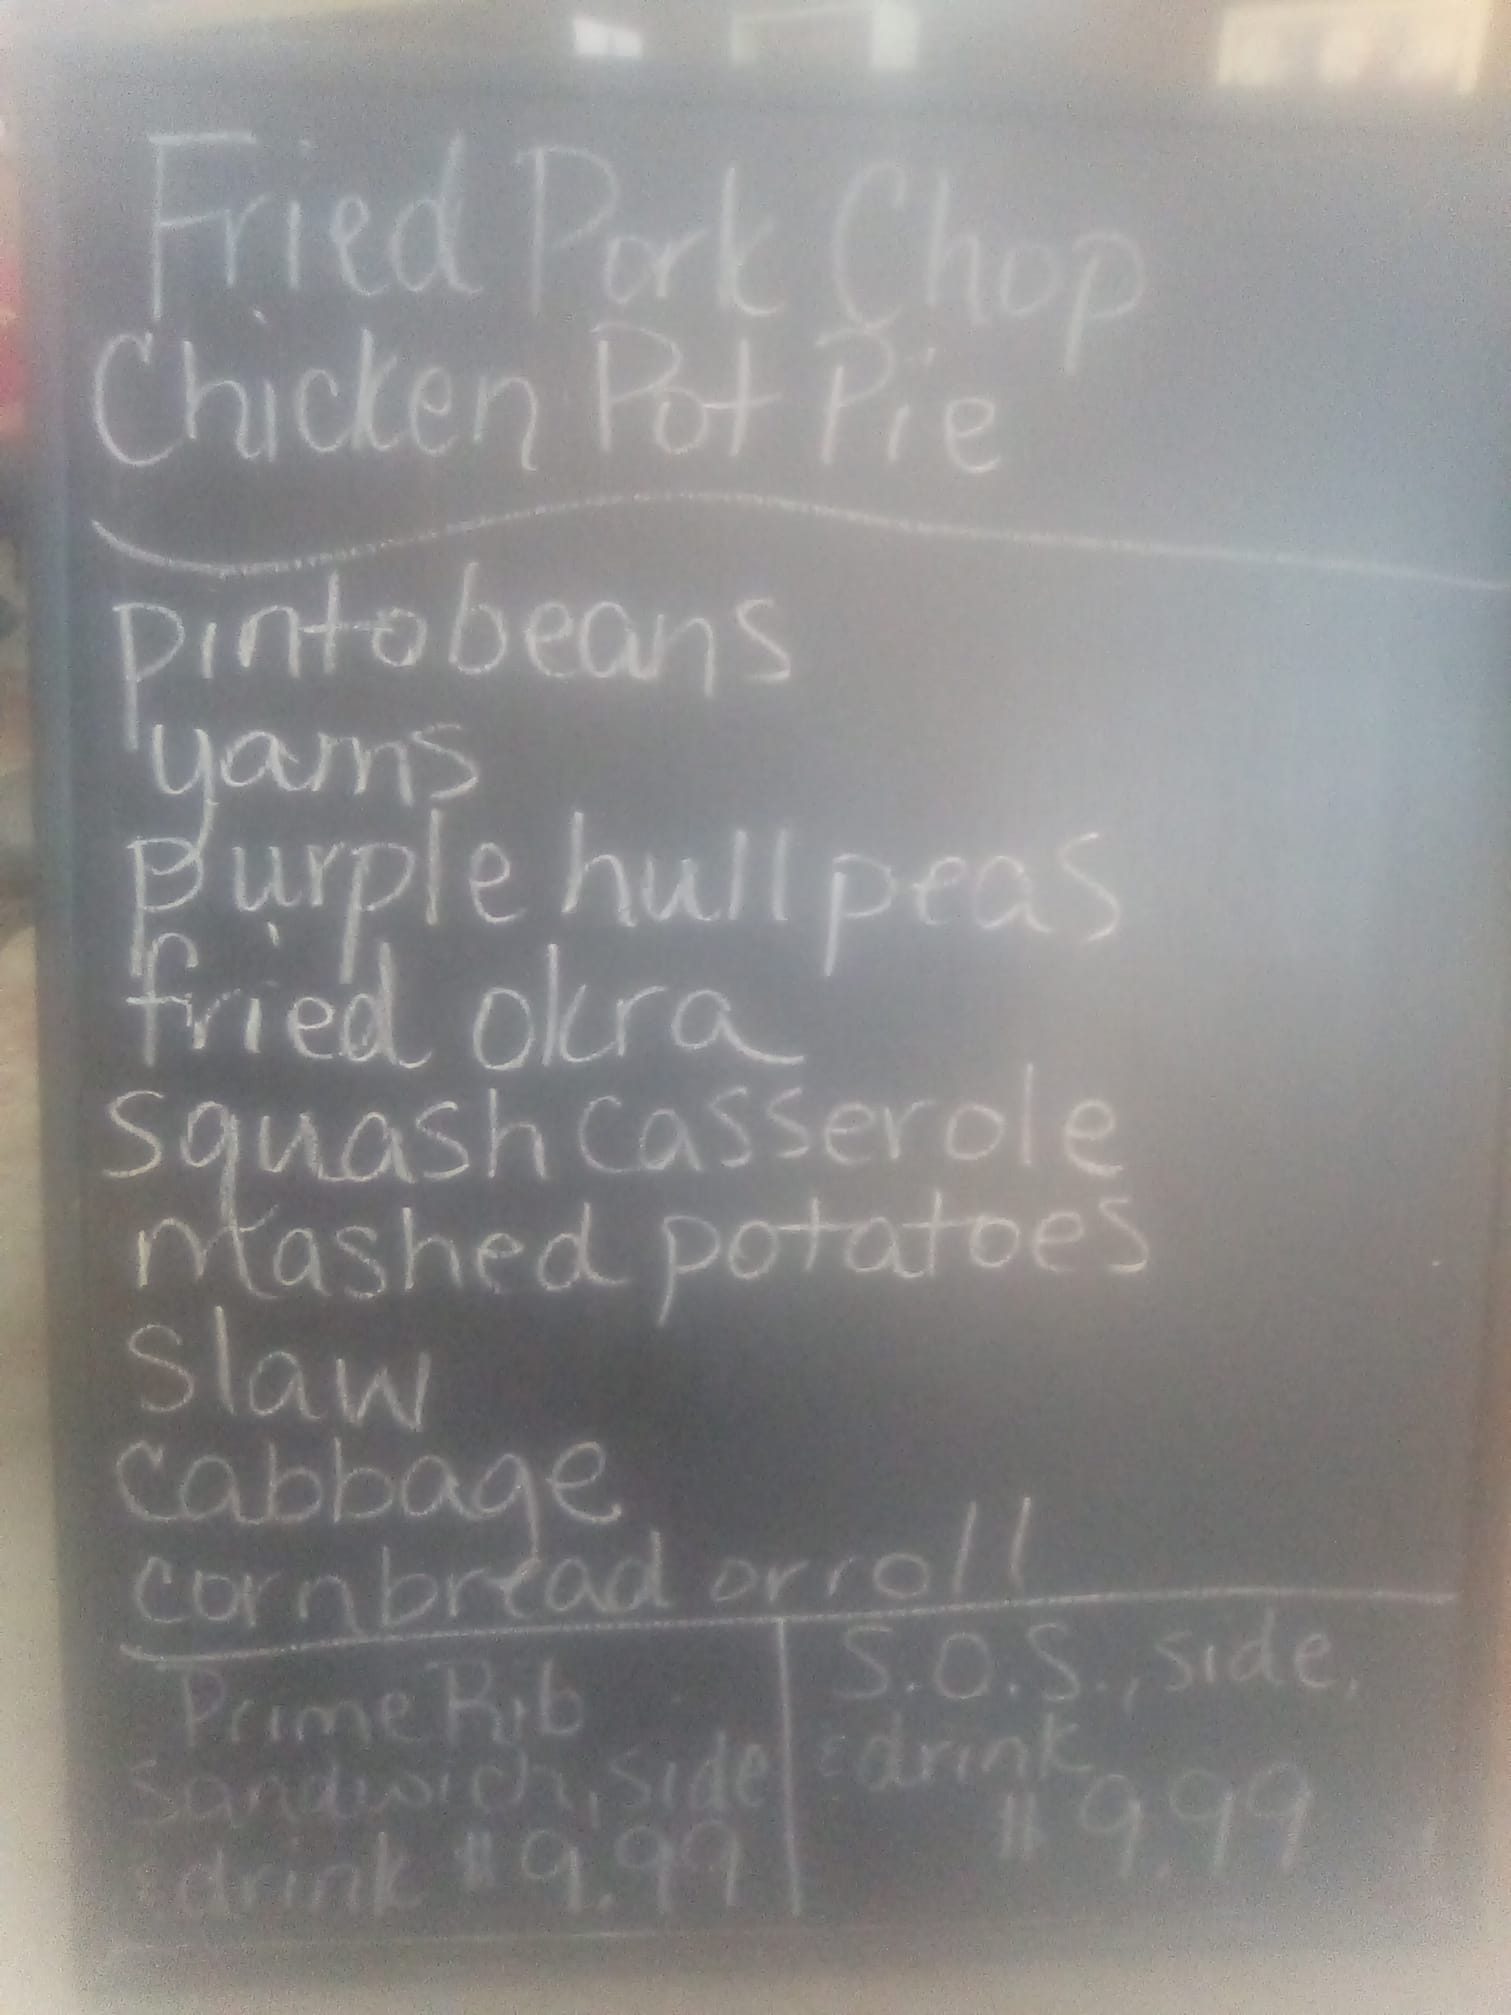 Fried Pork Chop
Chicken Pot Pie
pinto beans
yams
purple hull peas
fried okra
squash casserole
mashed potatoes
slaw
cabbage
cornbread or roll
Prime Rib
Sandwich, side
& drink $9.99
S.O.S., side,
& drink
$9.99